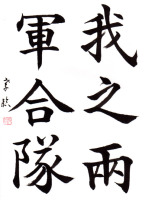 我之兩
軍合隊